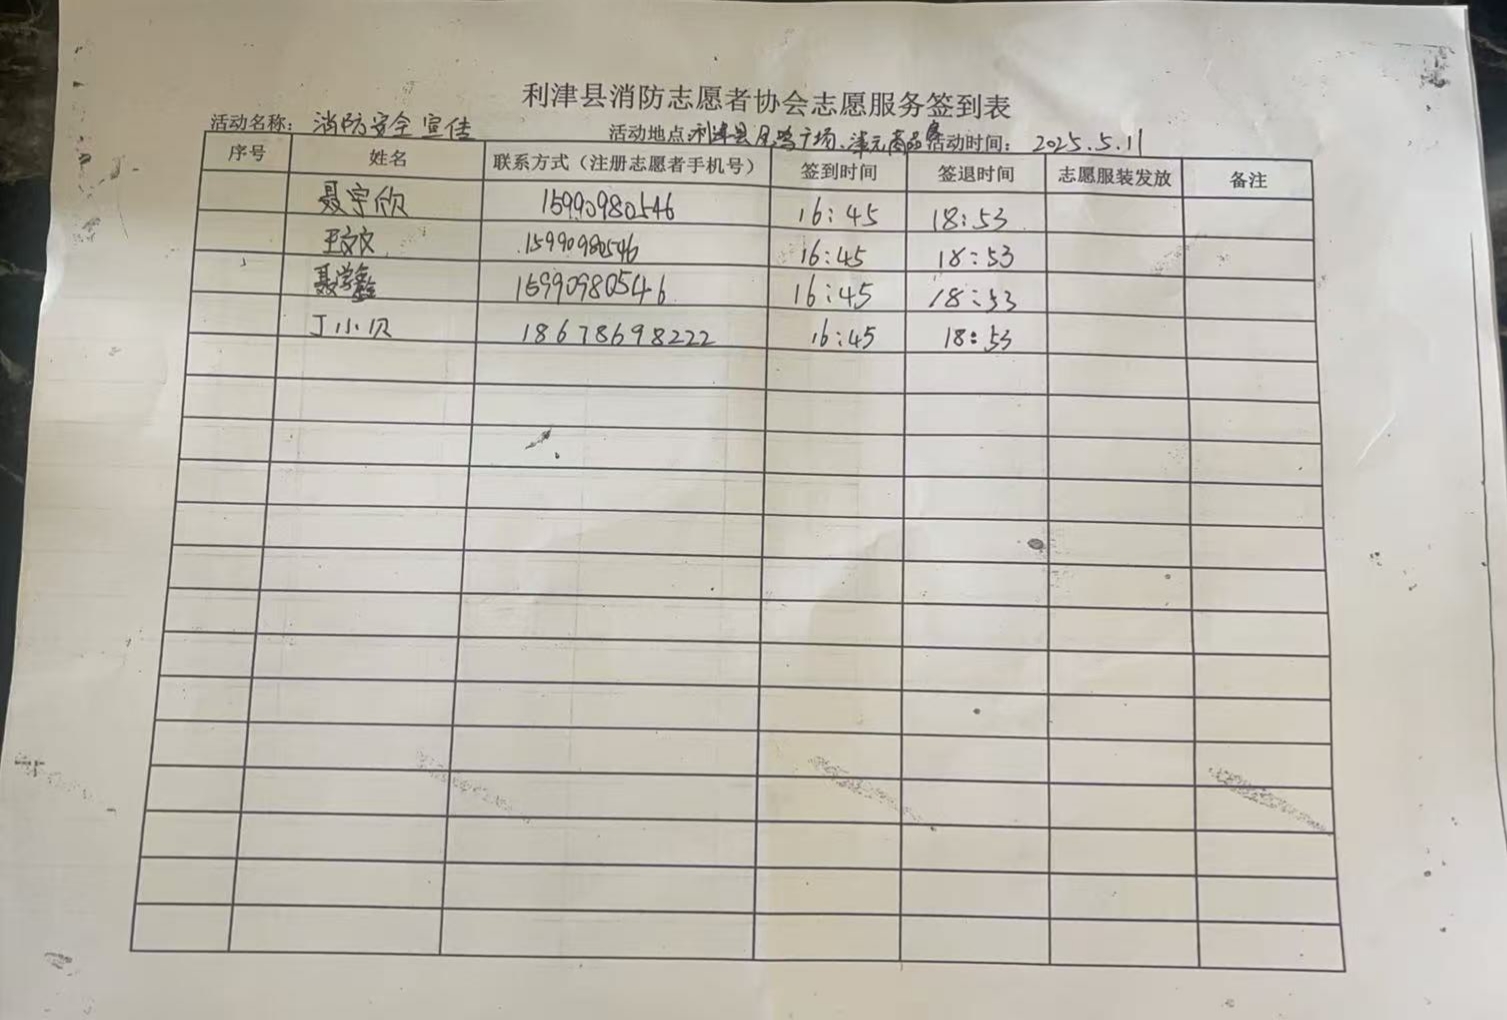 利津县消防志愿者协会志愿服务签到表
活动名称： 消防安全宣传 活动地点：利津县凤鸣广场、津元商品 活动时间： 2025.5.11
序号 姓名 联系方式（注册志愿者手机号） 签到时间 签退时间 志愿服装发放 备注
聂宇欣 15990980546 16:45 18:53
王文文 15990980546 16:45 18:53
聂学鑫 15990980546 16:45 18:53
丁小贝 18678698222 16:45 18:53